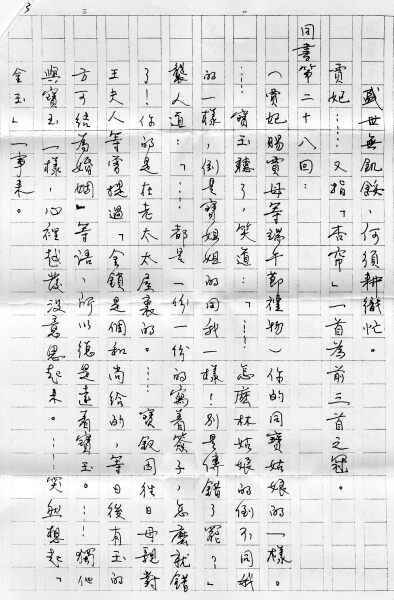 3
盛世無飢餒，何須耕織忙。
賈妃……又指「杏帘」一首為前三首之冠。
同書第二十八回：
（賈妃賜賈母等端午節禮物）你的同寶姑娘的一樣。
……寶玉聽了，笑道：「……怎麼林姑娘的倒不同我
的一樣，倒是寶姐姐的同我一樣！別是傳錯了罷？」
襲人道：「……都是一份一份的寫着簽子，怎麼就錯
了！你的是在老太太屋裏的。……寶釵因往日母親對
王夫人等曾提過「金鎖是個和尚給的，等日後有玉的
方可結為婚姻」等語，所以總是遠着寶玉。……獨他
與寶玉一樣，心裡越發沒意思起來。……笑
想起「
金玉」一事來。